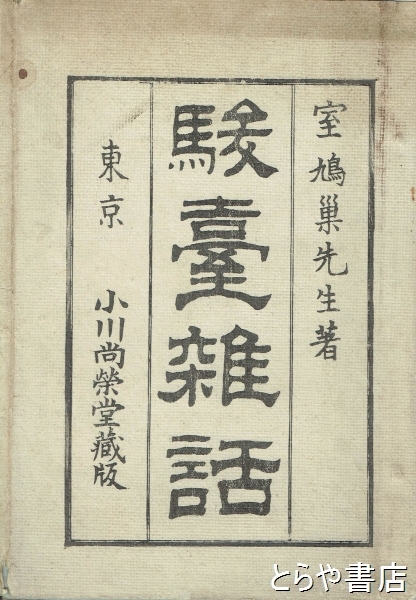 室鳩巢先生著
駿臺雜話
東京
小川尚榮堂藏版
とらや書店